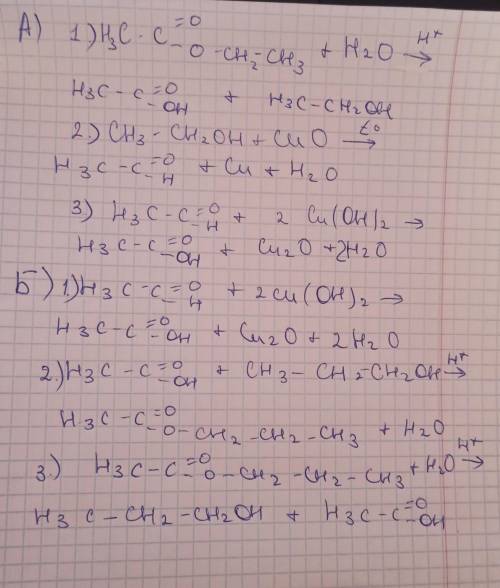 А) 1) H₃C - C =O -O-CH₂-CH₃ + H₂O →H⁺
H₃C - C =O -OH + H₃C-CH₂OH
2.) CH₃-CH₂OH + CuO →t°
H₃C - C =O -H + Cu + H₂O
3) H₃C - C =O -H + 2 Cu(OH)₂ →
H₃C - C =O -OH + Cu₂O + 2H₂O
Б) 1.) H₃C - C =O -H + 2Cu(OH)₂ →
H₃C - C =O -OH + Cu₂O + 2H₂O
2.) H₃C - C =O -OH + CH₃-CH₂-CH₂OH →H⁺
H₃C - C =O -O-CH₂-CH₂-CH₃ + H₂O
3.) H₃C - C =O -O-CH₂-CH₂-CH₃ + H₂O →H⁺
H₃C-CH₂-CH₂OH + H₃C-C =O -OH